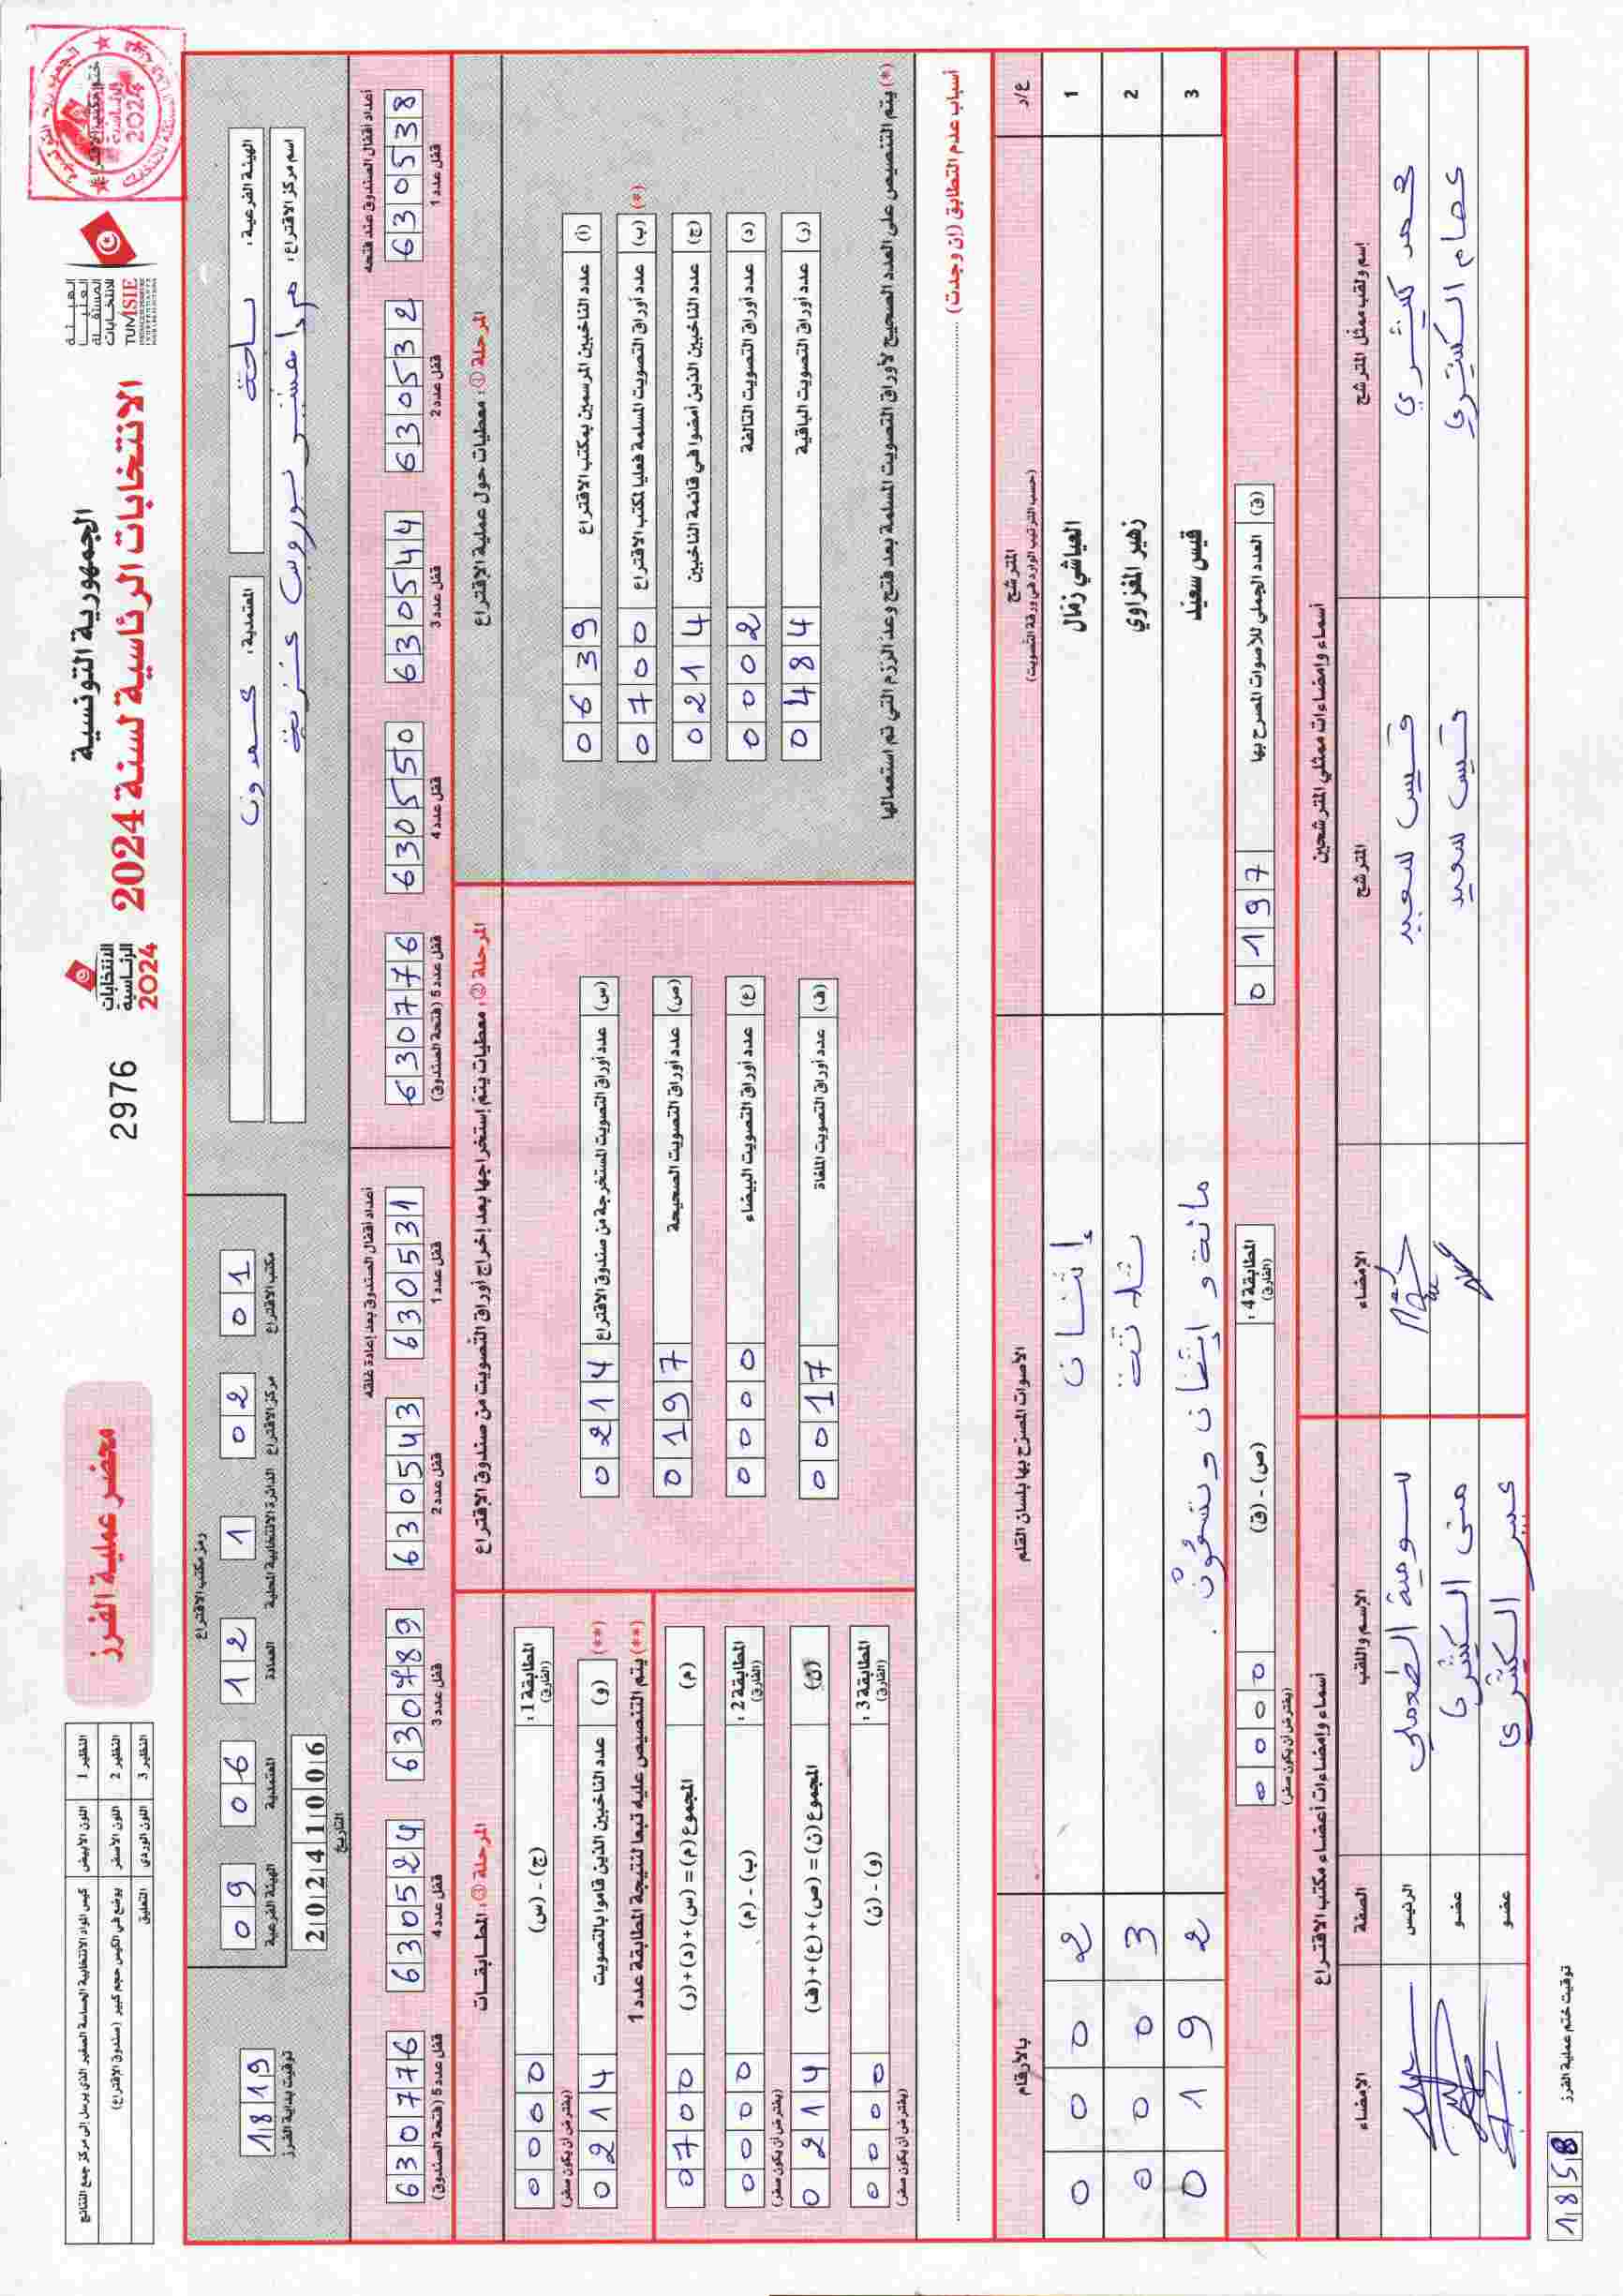 الجمهورية التونسية
الانتخابات الرئاسية لسنة 2024
الهيئة
العليا
المستقلة
للانتخابات
TUNISIE
الانتخابات
الرئاسية
2024
2976
محضر عملية الفرز
النظير 1 اللون الأبيض كيس المواد الانتخابية الحساسة الصغير الذي يرسل إلى مركز جمع النتائج
النظير 2 اللون الأصفر يوضع في الكيس حجم كبير (صندوق الاقتراع)
النظير 3 اللون الوردي التعليق
الهيئة الفرعية: باجة
المعتمدية: عمدون
اسم مركز الاقتراع:
رمز مكتب الاقتراع
مكتب الاقتراع 01
مركز الاقتراع 02
الدائرة الانتخابية المحلية 1
العمادة 12
المعتمدية 06
الهيئة الفرعية 09
التاريخ 20241006
توقيت بداية الفرز 1819
أعداد أقفال الصندوق عند فتحه
قفل عدد 1 630538
قفل عدد 2 630532
قفل عدد 3 630544
قفل عدد 4 630550
قفل عدد 5 (فتحة الصندوق) 630776
أعداد أقفال الصندوق بعد إعادة غلقه
قفل عدد 1 630531
قفل عدد 2 630543
قفل عدد 3 630789
قفل عدد 4 630524
قفل عدد 5 (فتحة الصندوق) 630776
المرحلة 1: معطيات حول عملية الإقتراع
(أ) عدد الناخبين المرسمين بمكتب الاقتراع 0639
(ب) عدد أوراق التصويت المسلمة فعليا لمكتب الاقتراع 0700 (*)
(ج) عدد الناخبين الذين أمضوا في قائمة الناخبين 0214
(د) عدد أوراق التصويت التالفة 0002
(ر) عدد أوراق التصويت الباقية 0484
(*) يتم التنصيص على العدد الصحيح لأوراق التصويت المسلمة بعد فتح وعد الرزم التي تم استعمالها
المرحلة 2: معطيات يتم إستخراجها بعد إخراج أوراق التصويت من صندوق الإقتراع
(س) عدد أوراق التصويت المستخرجة من صندوق الاقتراع 0214
(ص) عدد أوراق التصويت الصحيحة 0197
(ع) عدد أوراق التصويت البيضاء 0000
(ف) عدد أوراق التصويت الملغاة 0017
المرحلة 3: المطابقات
المطابقة 1: (الفارق) (ج) - (س) 0000 (يفترض أن يكون صفر)
(**) (و) عدد الناخبين الذين قاموا بالتصويت 0214
(**) يتم التنصيص عليه تبعا لنتيجة المطابقة عدد 1
(م) المجموع (م) = (س)+(د)+(ر) 0700
المطابقة 2: (الفارق) (ب) - (م) 0000 (يفترض أن يكون صفر)
(ن) المجموع (ن) = (ص)+(ع)+(ف) 0214
المطابقة 3: (الفارق) (و) - (ن) 0000 (يفترض أن يكون صفر)
أسباب عدم التطابق (إن وجدت)
ع/د المترشح (حسب الترتيب الوارد في ورقة التصويت) الأصوات المصرح بها بلسان القلم بالأرقام
1 العياشي زمال إثنان 0002
2 زهير المغزاوي ثلاثة 0003
3 قيس سعيد مائة و إثنان وتسعون 0192
(ق) العدد الجملي للأصوات المصرح بها 0197
المطابقة 4: (الفارق) (ص) - (ق) 0000 (يفترض أن يكون صفر)
أسماء وإمضاءات ممثلي المترشحين
إسم ولقب ممثل المترشح المترشح الإمضاء
محمد كثيري قيس سعيد
عصام الكثيري قيس سعيد
أسماء وإمضاءات أعضاء مكتب الاقتراع
الإسم واللقب الصفة الإمضاء
الرئيس
منى الكثيري عضو
عبير الكثيري عضو
توقيت ختم عملية الفرز 1858